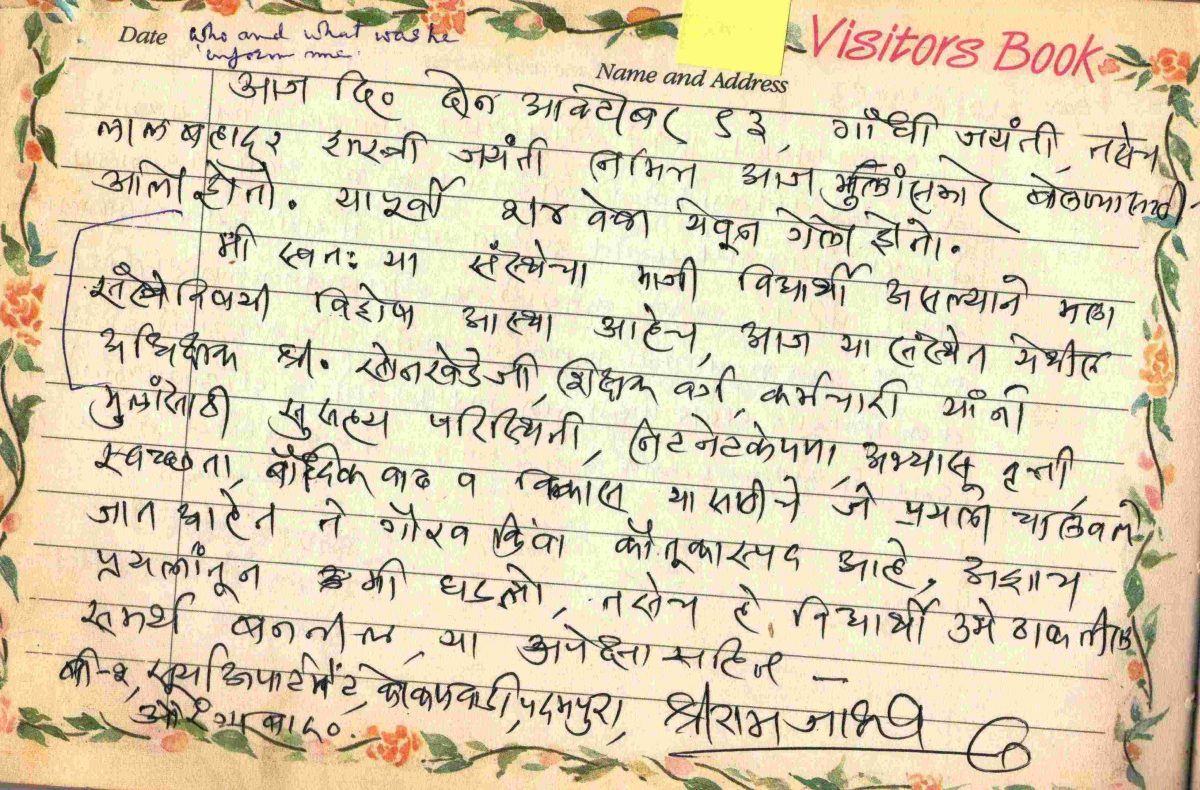 Visitors Book
Date who and what was he
inform me.
Name and Address
आज दि० दोन आक्टोबर ९३, गाँधी जयंती, तसेच
लालबहादूर शास्त्री जयंती निमित्त आज मुलांसमोर बोलण्यासाठी
आलो होतो. यापूर्वी येवून गेलो होतो.
मी स्वतः या संस्थेचा माजी विद्यार्थी असल्याने मला
संस्थेविषयी विशेष आस्था आहेच, आज या संस्थेत येथील
अधिक्षक श्री. सोनखेडेजी, शिक्षक वर्ग, कर्मचारी यांनी
मुलांसाठी सुसह्य परिस्थिती, नेटनेटकेपणा, अभ्यासू वृत्ती,
स्वच्छता, बौध्दिक वाढ व विकास यासाठीचे जे प्रयत्न चालविले
जात आहेत ते गौरव किंवा कौतूकास्पद आहे. अशाच
प्रयत्नांतून मी घडलो, तसेच हे विद्यार्थी उभे ठाकतील
समर्थ बनतील, या अपेक्षेसहित —
बी-२, सूर्या अपार्टमेंट, कोकणवाडी, पदमपुरा, श्रीराम जाधव
औरंगाबाद०.